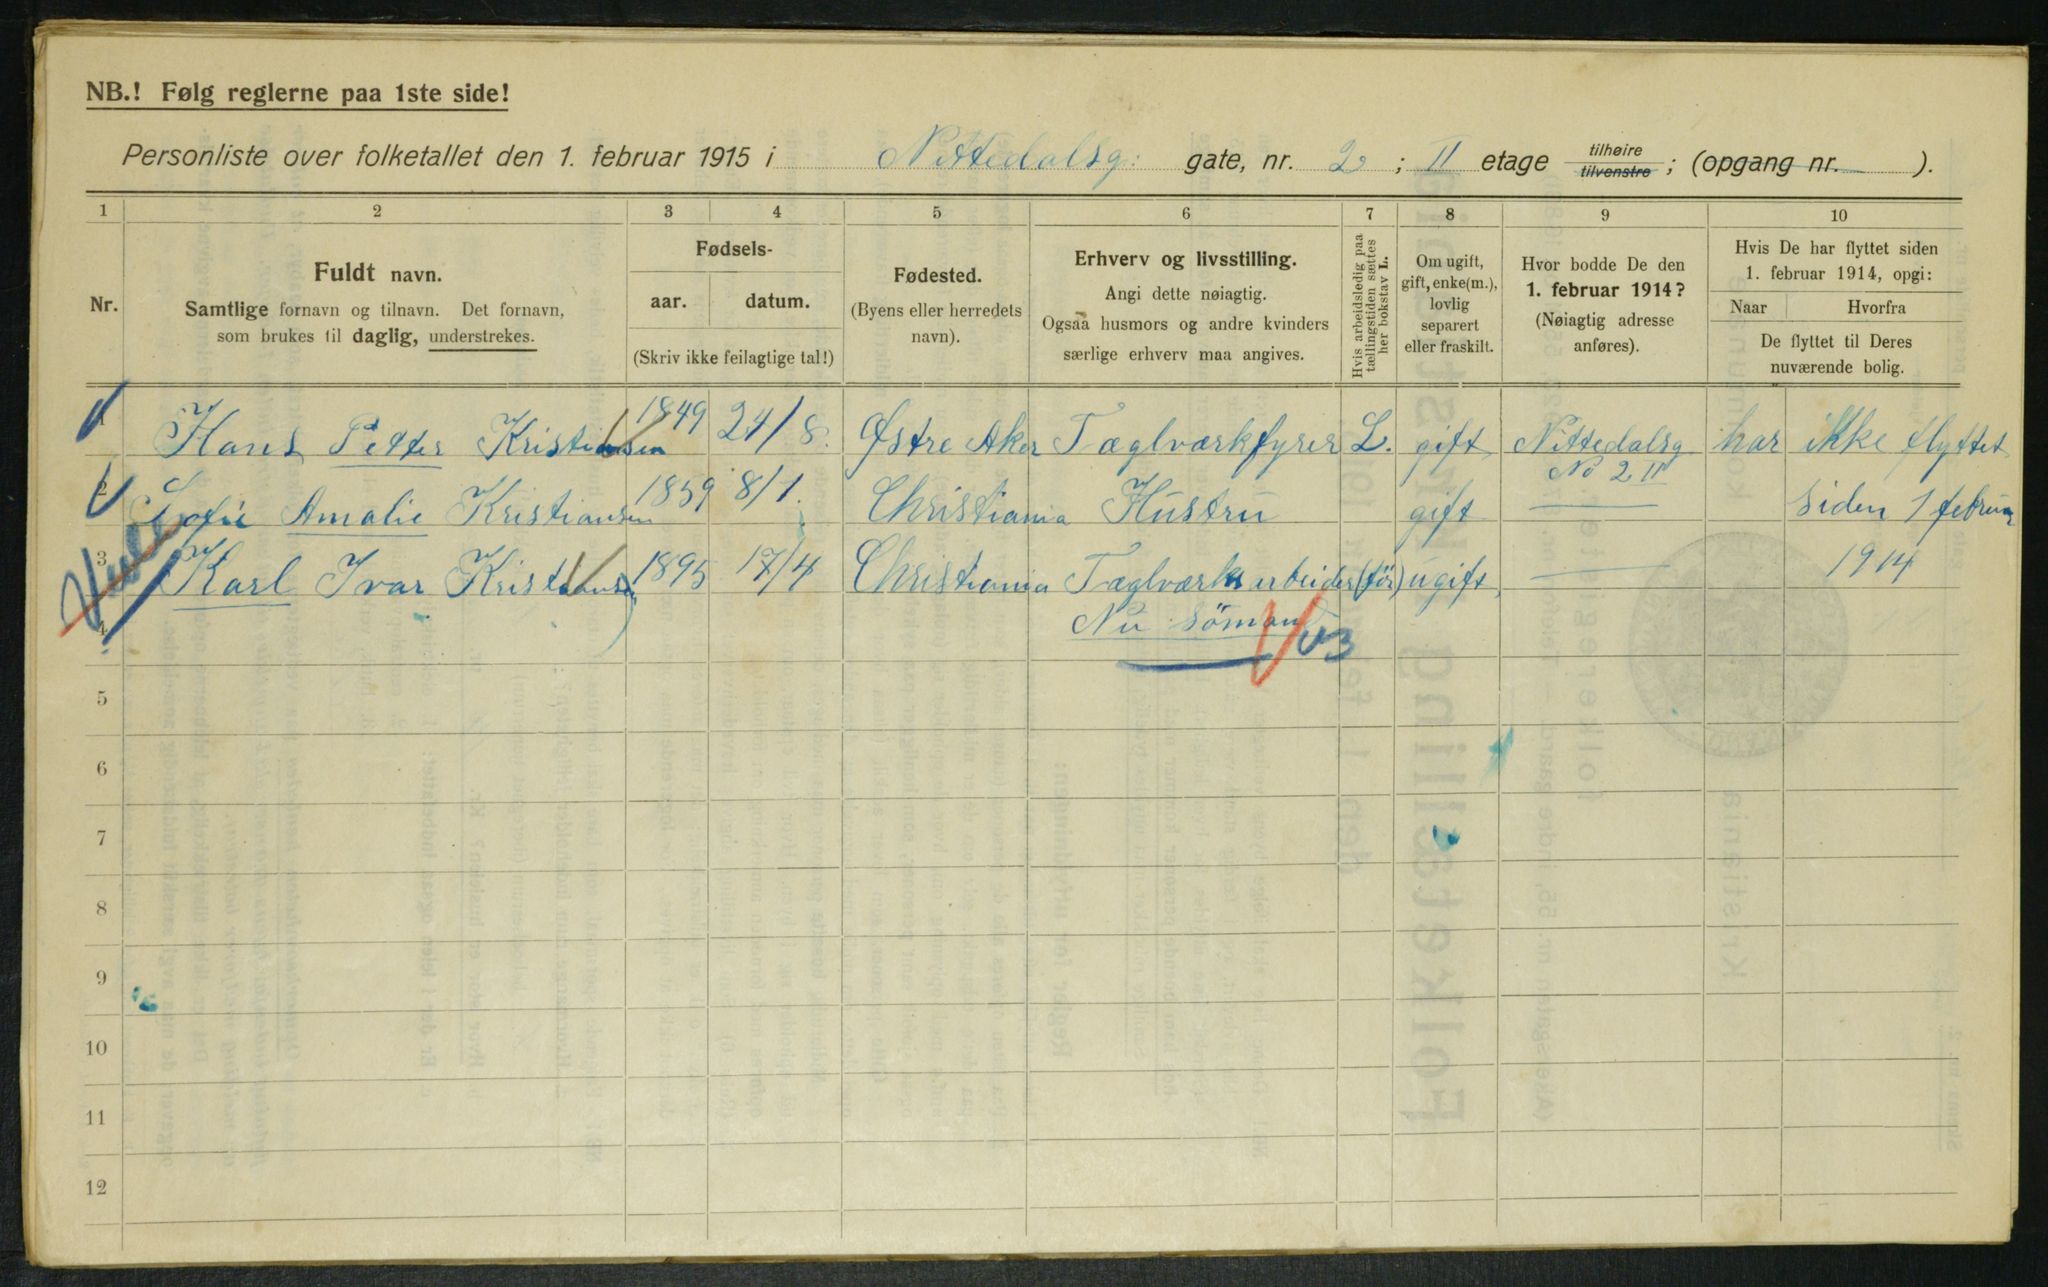 NB.! Følg reglerne paa 1ste side!
Personliste over folketallet den 1. februar 1915 i Nittedalsg: gate, nr. 2 ; II etage tilhøire tilvenstre ; (opgang nr. ).
1 2 3 4 5 6 7 8 9 10
Nr.
Fuldt navn.
Samtlige fornavn og tilnavn. Det fornavn,
som brukes til daglig, understrekes.
Fødsels-
aar. datum.
(Skriv ikke feilagtige tal!)
Fødested.
(Byens eller herredets
navn).
Erhverv og livsstilling.
Angi dette nøiagtig.
Ogsaa husmors og andre kvinders
særlige erhverv maa angives.
Hvis arbeidsledig paa
tællingstiden sættes
her bokstav L.
Om ugift,
gift, enke(m.),
lovlig
separert
eller fraskilt.
Hvor bodde De den
1. februar 1914?
(Nøiagtig adresse
anføres).
Hvis De har flyttet siden
1. februar 1914, opgi:
Naar Hvorfra
De flyttet til Deres
nuværende bolig.
1 Hans Petter Kristiansen 1849 24/8. Østre Aker Tæglværkfyrer L. gift Nittedalsg har ikke flyttet
No 2 II
2 Sofie Amalie Kristiansen 1859 8/1. Christiania Hustru gift siden 1 februar
3 Karl Ivar Kristiansen 1895 17/4 Christiania Tæglværksarbeider (før) ugift 1914
4 Nu sömand
5
6
7
8
9
10
11
12